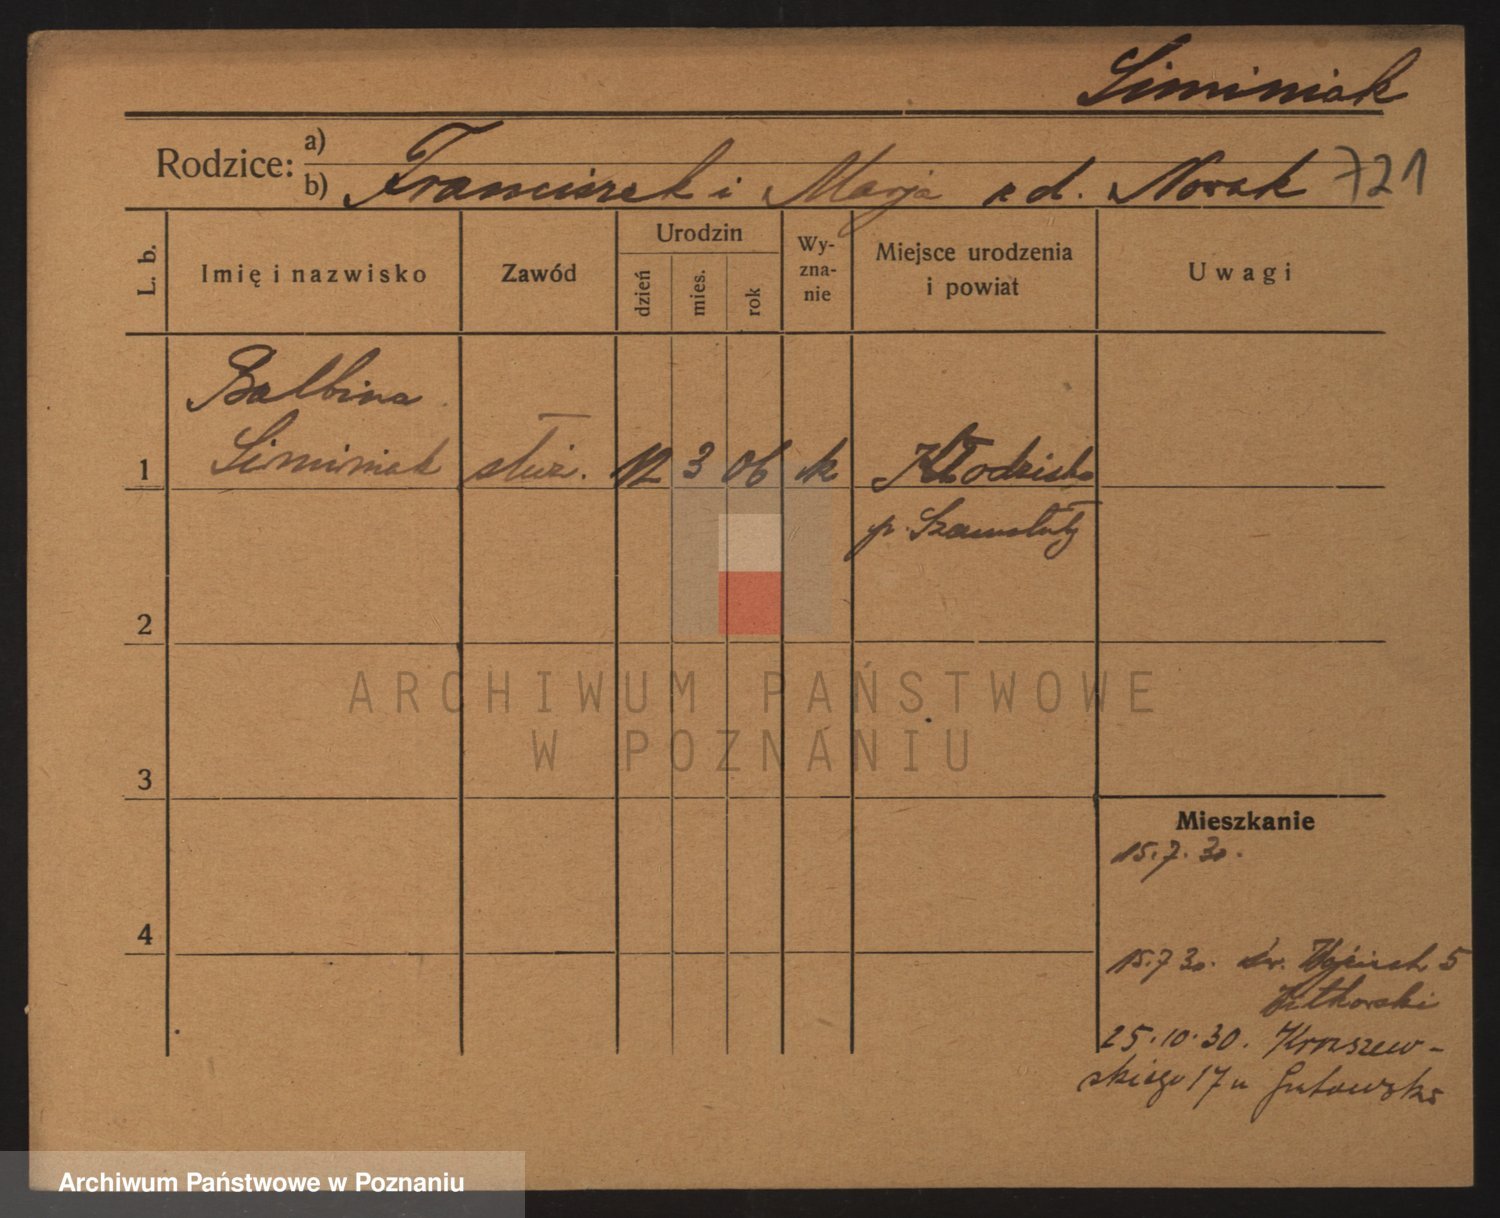 Siminiak
Rodzice: a)
b) Franciszek i Marja z d. Nowak 721
L. b. Imię i nazwisko Zawód Urodzin dzień mies. rok Wy-zna-nie Miejsce urodzenia i powiat Uwagi
Balbina
1 Siminiak służ. 12 3 06 k Kłodzisko
p. Szamotuły
2
ARCHIWUM PAŃSTWOWE
W POZNANIU
3
Mieszkanie
15.7.30.
4
15.7 30. św. Wojciech 5
25.10.30. Kraszew-
skiego 17 u
Archiwum Państwowe w Poznaniu